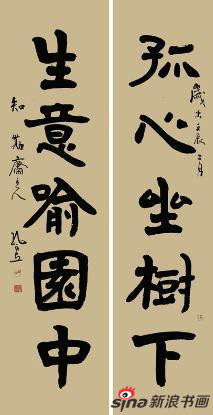 孤心坐樹下
歲次壬辰二月
生意喻園中
知
齋主人
sina新浪书画